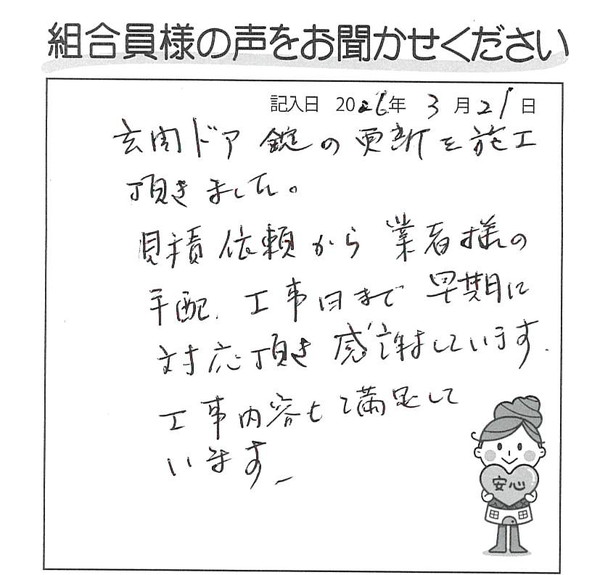 組合員様の声をお聞かせください
記入日 2026年 3月21日
玄関ドア錠の更新を施工
頂きました。
見積依頼から業者様の
手配、工事日まで早期に
対応頂き感謝しています。
工事内容も満足して
います。
安心